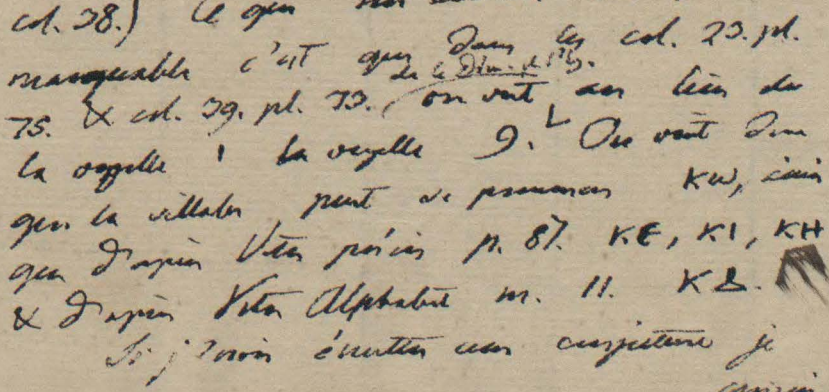 col. 38.) Ce qui
marquable c'est que dans les col. 23. pl.
75. & col. 39. pl. 73. on voit au lieu de
la voyelle ı la voyelle 9. On voit donc
que la syllabe peut se prononcer KW, ainsi
que d'après Votre précis p. 87. KE, KI, KH
& d'après Votre Alphabet n. 11.
Si j'osois émettre une conjecture je